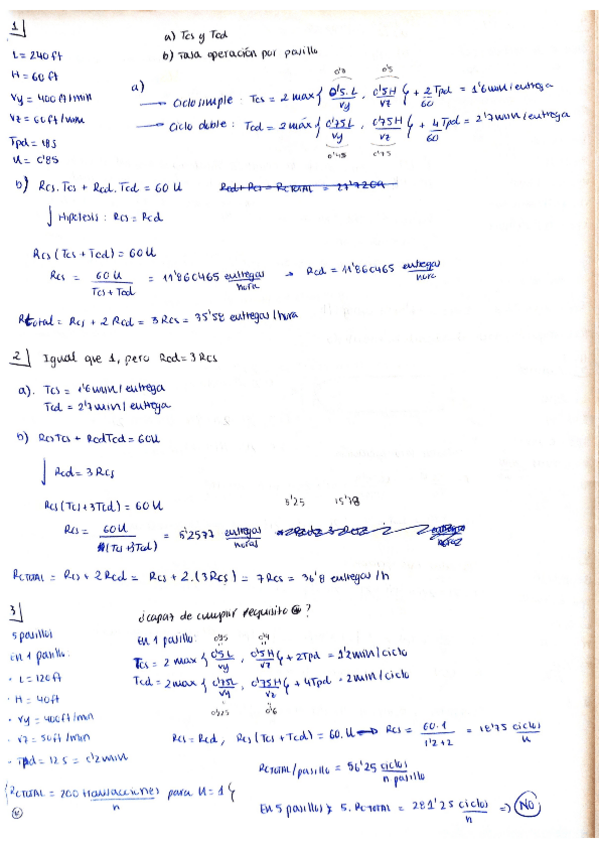 1
a) Tcs y Tcd
b) Tasa operación por pasillo
L = 240 ft
H = 60 ft
Vy = 400 ft/min
Vz = 60 ft/min
Tpd = 18 s
U = 0'85
a)
→ Ciclo simple : Tcs = 2 max { 0'5.L / Vy , 0'5H / Vz } + 2/60 Tpd = 1'6 min/entrega
→ Ciclo doble : Tcd = 2 max { 0'75L / Vy , 0'75H / Vz } + 4/60 Tpd = 2'7 min/entrega
0'45 0'75
b) Rcs.Tcs + Rcd.Tcd = 60 U
↓ Hipótesis : Rcs = Rcd
Rcs (Tcs + Tcd) = 60U
Rcs = 60 U / Tcs + Tcd = 11'860465 entregas/hora → Rcd = 11'860465 entregas/hora
Rtotal = Rcs + 2 Rcd = 3 Rcs = 35'58 entregas/hora
2 Igual que 1, pero Rcd = 3 Rcs
a). Tcs = 1'6 min/entrega
Tcd = 2'7 min/entrega
b) RcsTcs + RcdTcd = 60U
↓ Rcd = 3 Rcs
Rcs (Tcs + 3Tcd) = 60 U
5'25 15'78
Rcs = 60U / (Tcs + 3Tcd) = 5'2577 entregas/horas
RcTOTAL = Rcs + 2 Rcd = Rcs + 2.(3Rcs) = 7Rcs = 36'8 entregas/h
3 ¿capaz de cumplir requisito ?
5 pasillos
En 1 pasillo:
· L = 120 ft
· H = 40 ft
· Vy = 400 ft/min
· Vz = 50 ft/min
· Tpd = 12 s = 0'2 min
En 1 pasillo:
Tcs = 2 max { 0'5L / Vy , 0'5H / Vz } + 2Tpd = 1'2 min/ciclo
Tcd = 2 max { 0'75L / Vy , 0'75H / Vz } + 4Tpd = 2 min/ciclo
0'225 0'6
Rcs = Rcd, Rcs (Tcs + Tcd) = 60.U → Rcs = 60.1 / 1'2 + 2 = 18'75 ciclos/h
RcTOTAL/pasillo = 56'25 ciclos / h pasillo
{ RcTOTAL = 200 transacciones / h para U = 1 }
En 5 pasillos 5. RcTOTAL = 281'25 ciclos/h ⇒ NO